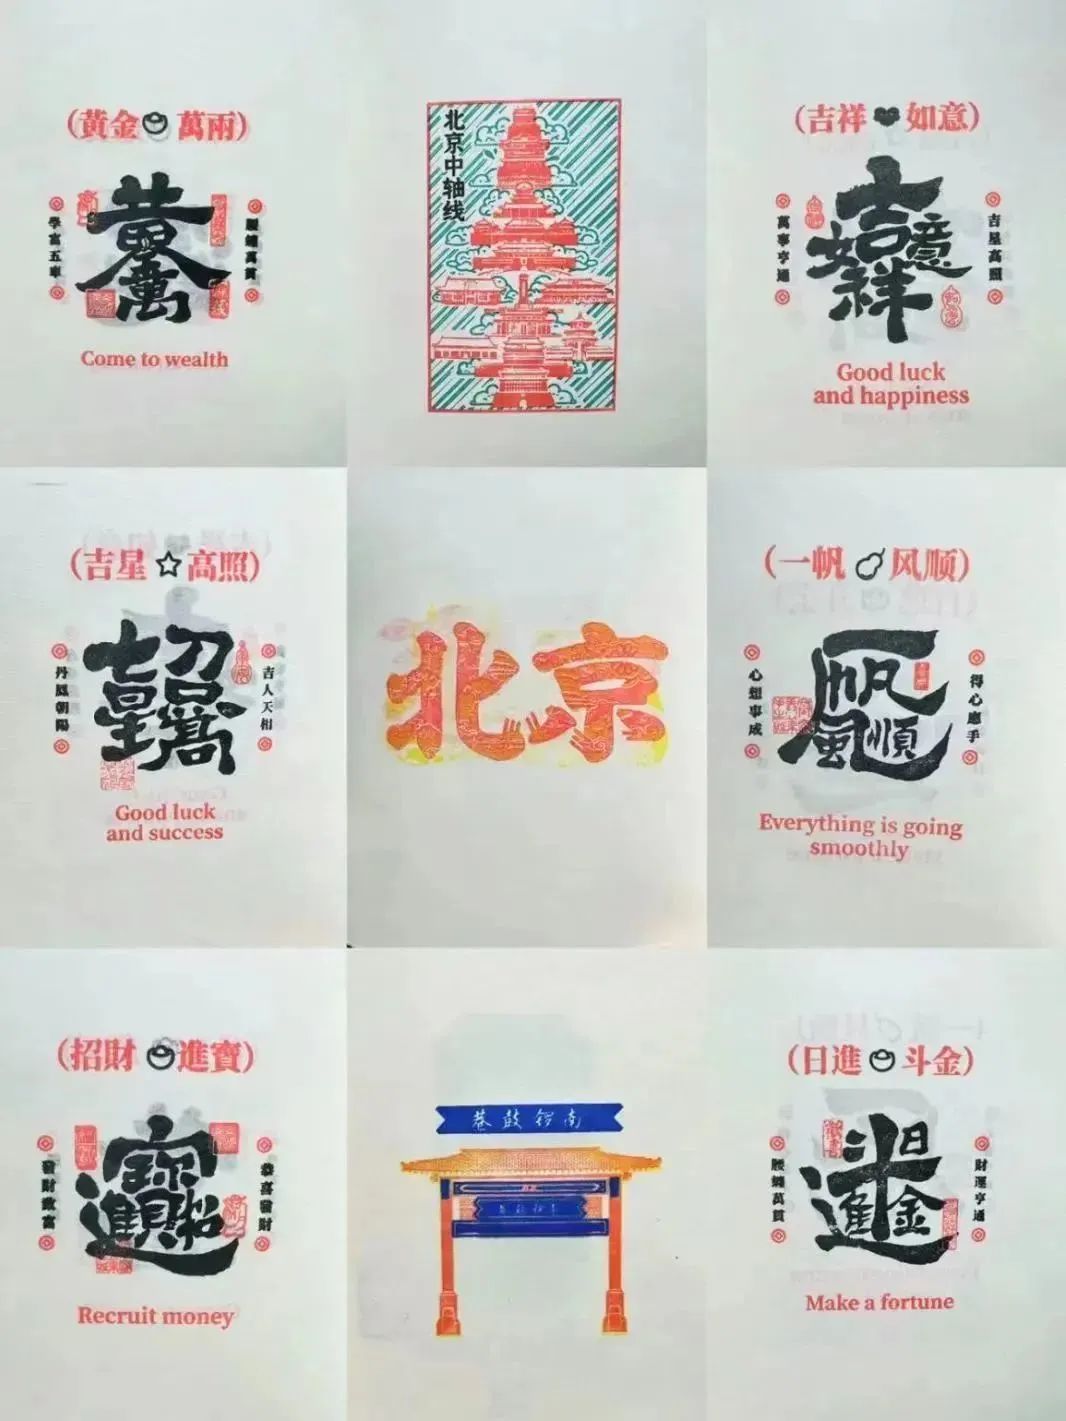 （黃金萬兩）
學富五車
黃金萬兩
腰纏萬貫
Come to wealth
北京中轴线
（吉祥如意）
萬事亨通
吉祥如意
吉星高照
Good luck
and happiness
（吉星高照）
丹鳳朝陽
吉星高照
吉人天相
Good luck
and success
北京
（一帆风顺）
心想事成
一帆風順
得心應手
Everything is going
smoothly
（招財進寶）
發財致富
招財進寶
恭喜發財
Recruit money
巷鼓锣南
巷鼓锣南
（日進斗金）
腰纏萬貫
日進斗金
財運亨通
Make a fortune